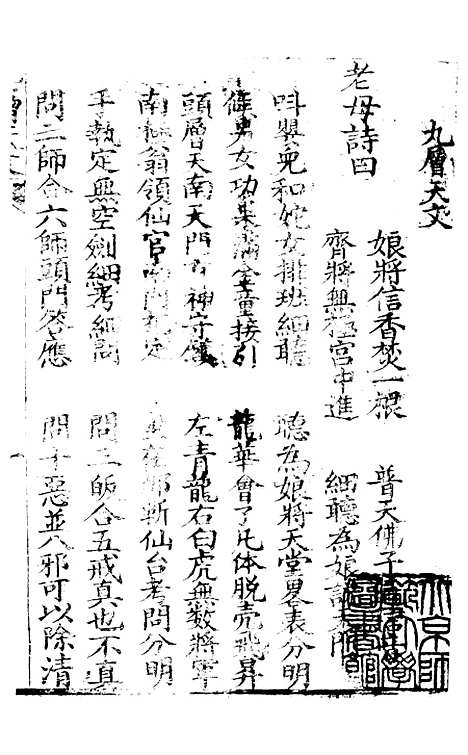 九層天文
老母詩曰
娘將信香焚一根 普天佛子
齊將無極宮中進 細聽為娘
叫嬰兒和姹女排班細聽 聽為娘將天堂畧表分明
男女功果滿金童接引 龍華會了凡体脱壳飛昇
頭層天南天門有神守 左青龍右白虎無數將軍
南極翁領仙官 斬仙台考問分明
手執定無空劍細考細問 問三皈合五戒真也不真
問三師合六師頭門答應 問十惡並八邪可以除清
北京師範大學圖書館